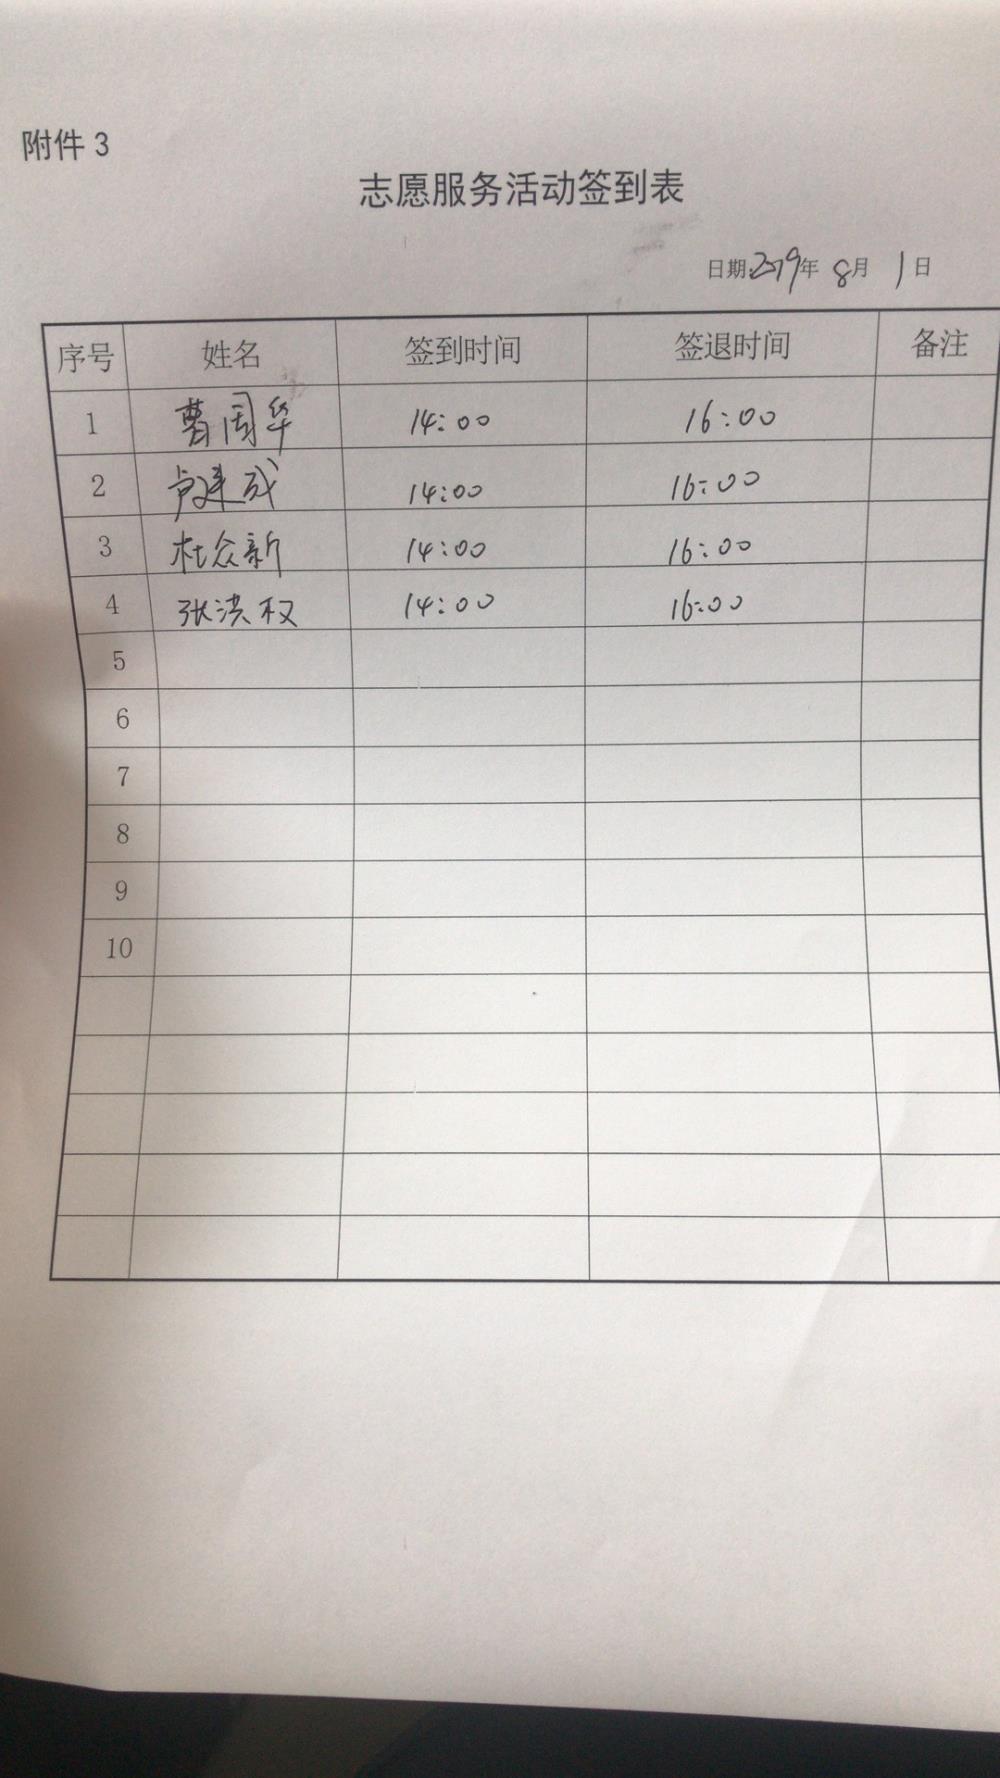 附件 3
志愿服务活动签到表
日期:2019年 8月 1日
序号 姓名 签到时间 签退时间 备注
1 曹周华 14:00 16:00
2 卢建成 14:00 16:00
3 杜众新 14:00 16:00
4 张洪权 14:00 16:00
5
6
7
8
9
10